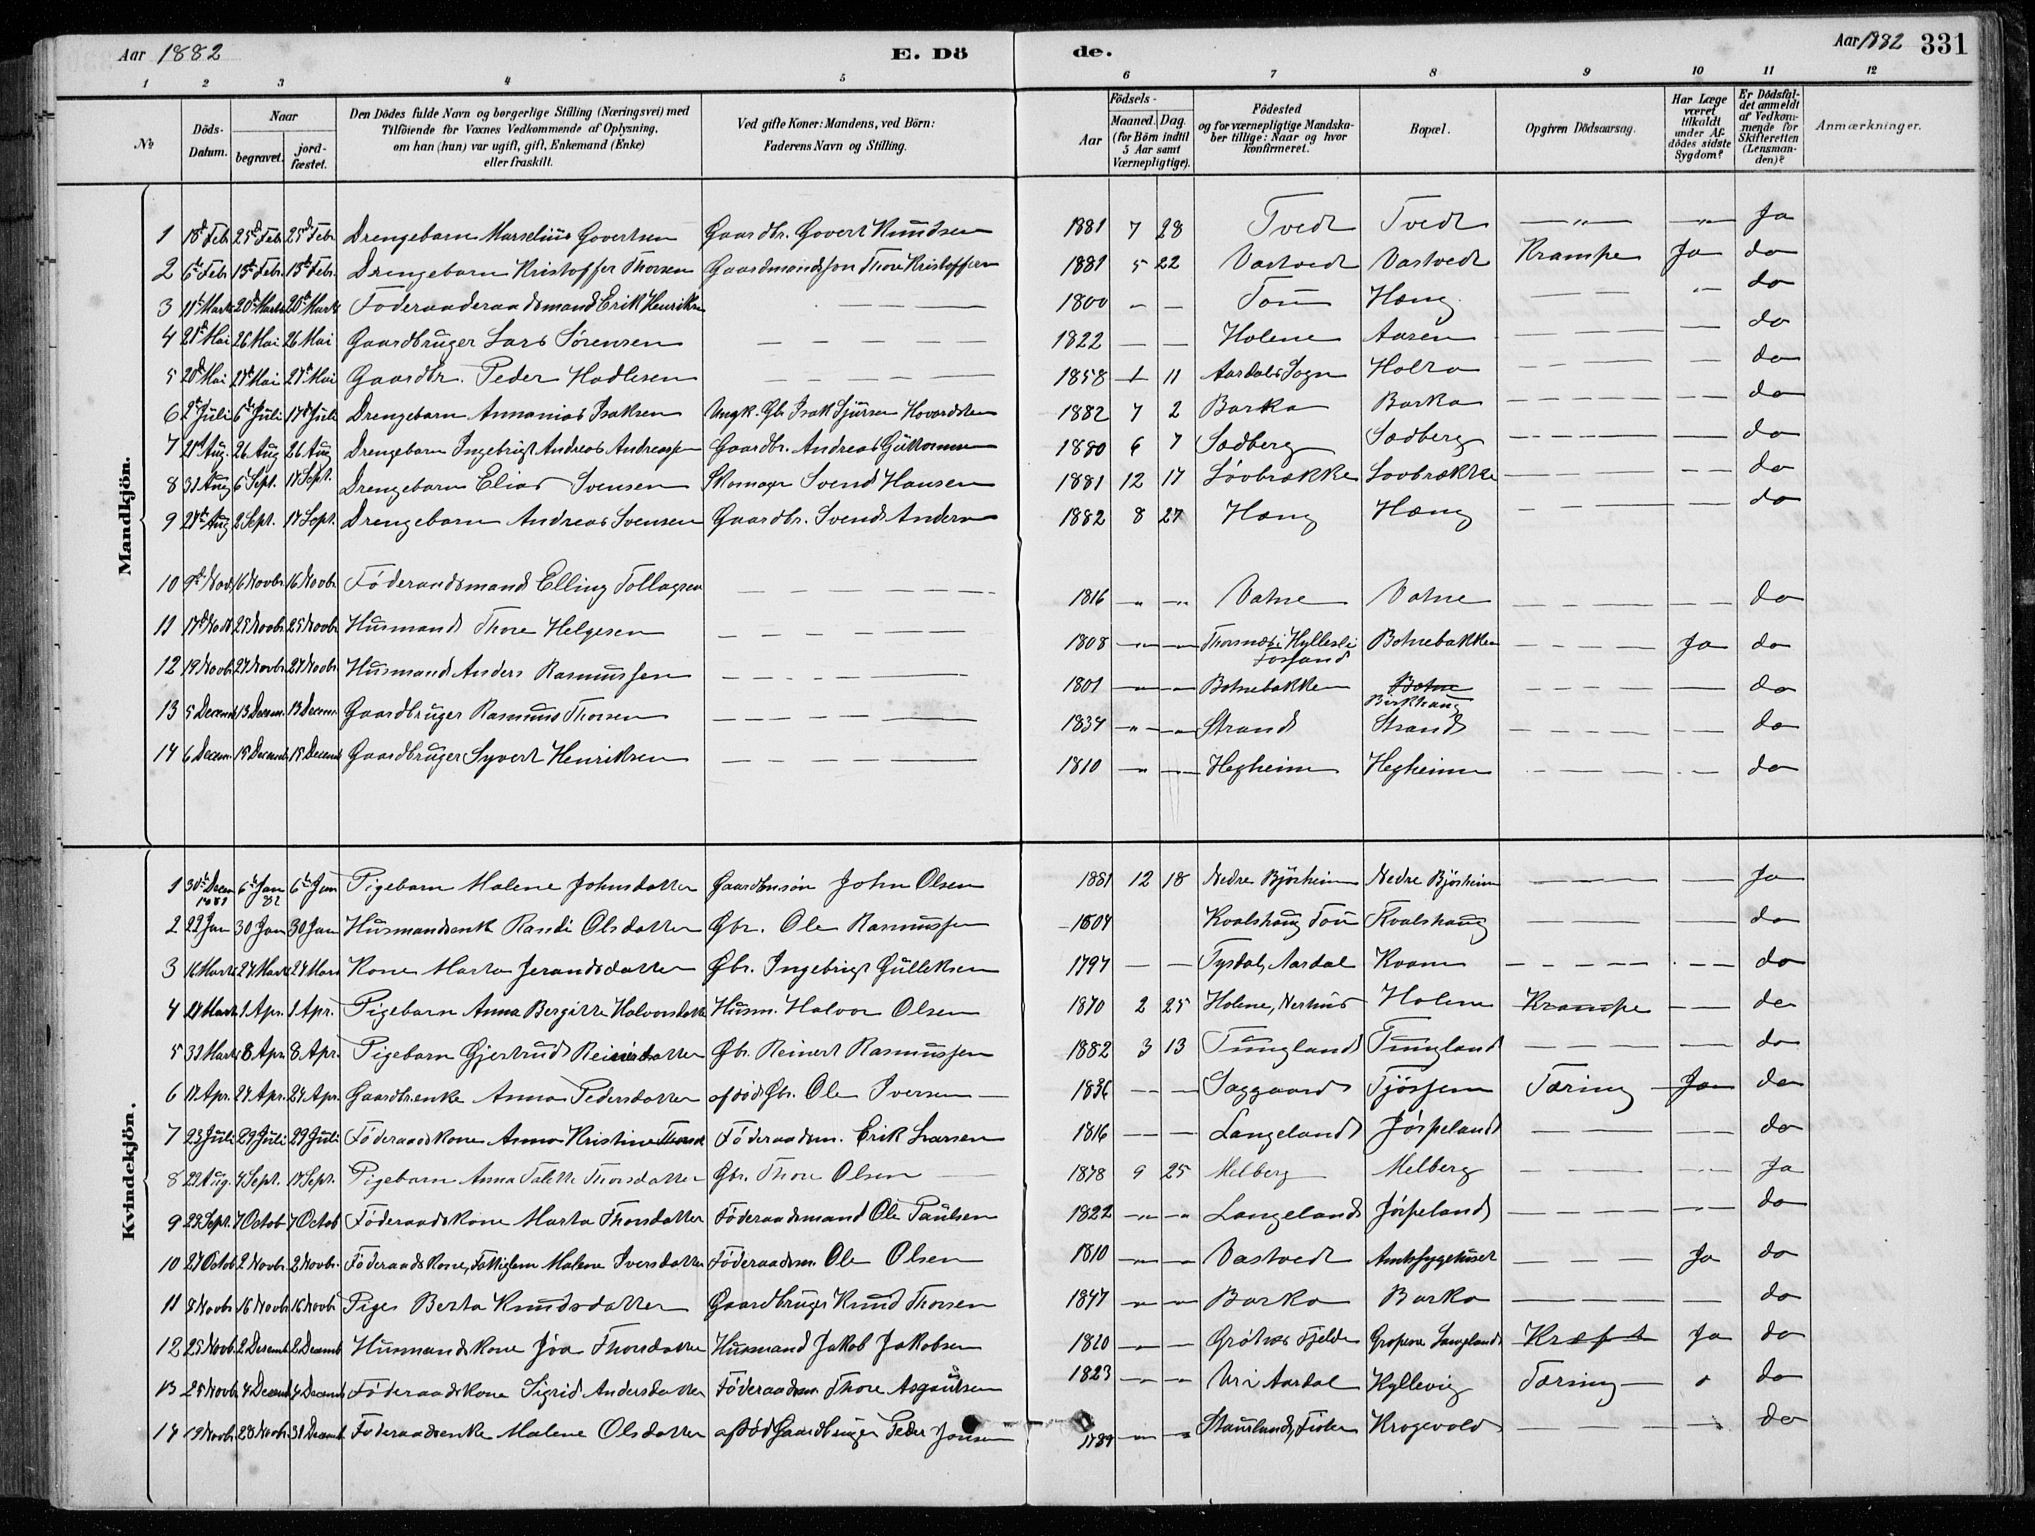 Aar 1882 E. Dö de. Aar 1882 331
1 2 3 4 5 6 7 8 9 10 11 12
No
Döds-Datum.
Naar
begravet.
jord-fæstet.
Den Dödes fulde Navn og borgerlige Stilling (Næringsvei) med Tilföiende for Voxnes Vedkommende af Oplysning, om han (hun) var ugift, gift, Enkemand (Enke) eller fraskilt.
Ved gifte Koner: Mandens, ved Börn: Faderens Navn og Stilling.
Födsels-
Aar
Maaned. Dag.
(for Börn indtil 5 Aar samt Værnepligtige).
Födested og for værnepligtige Mandskaber tillige: Naar og hvor konfirmeret.
Bopæl.
Opgiven Dödsaarsag.
Har Læge været tilkaldt under Afdödes sidste Sygdom?
Er Dödsfaldet anmeldt af Vedkommende for Skifteretten (Lensmanden)?
Anmærkninger.
Mandkjön.
1 18d Feb 25d Feb 25d Febr Drengebarn Marselius Govertsen Gaardbr. Govert Knudsen 1881 7 28 Tvedt Tvedt — " — " Ja
2 6t Feb 15t Feb. 15t Feb. Drengebarn Kristoffer Thorsen Gaardmandsson Thore Kristoffersen 1881 5 22 Vastvedt Vastvedt Krampe Ja do
3 11t Marts 20d Marts 20d Marts Föderaaderaadsmand Erik Henriksen — — — 1800 — — Tou Hæng — — — — do
4 21d Mai 26 Mai 26 Mai Gaardbruger Lars Sørensen — — — 1822 — — Holene Aasen — — — — do
5 20d Mai 27d Mai 27d Mai Gaardbr. Peder Hadlesen — — — 1858 1 11 Aardals Sogn Holta — — — — do
6 2d Juli 6t Juli 17d Juli Drengebarn Annanias Isaksen Ungk. Gbr Isak Sjursen 1882 7 2 Barka Barka — — — — do
7 21d Aug. 26 Aug 26 Aug Drengebarn Ingebrigt Andreas Andreassen Gaardbr. Andreas Guttormsen 1880 6 7 Sadberg Sadberg — — — — do
8 31 Aug 6t Sept. 17 Sept. Drengebarn Elias Svensen Skomager Svend Hansen 1881 12 17 Løvbrække Lovbrække — — — — do
9 27d Aug 2 Sept. 17 Sept. Drengebarn Andreas Svensen Gaardbr. Svend Andersen 1882 8 27 Hæng Hæng — — — — do
10 9d Nov. 16 Novbr. 16 Novbr. Föderaadsmand Elling Tollagsen — — — 1816 " " Vatne Vatne — — — — do
11 17d Novb 25 Novbr. 25 Novbr. Husmand Thore Helgesen — — — 1808 " " Thorsnæs i Hyllesli Fossand Botnebakken Ja do
12 19 Novb. 27 Novbr. 27 Novbr. Husmand Anders Rasmussen — — — 1801 " " Botnebakken Botne Birkhaug — — — — do
13 5 Decemb 13 Decem. 13 Decem. Gaardbruger Rasmus Thorsen — — — 1834 " " Strand Strand — — — — do
14 6 Decem. 15 Decemb 15 Decemb Gaardbruger Syvert Henriksen — — — 1810 " " Hegheim Hegheim — — — — do
Kvindekjön.
1 30t Decem 1881 6t Jan 82 6t Jan Pigebarn Malene Johnsdatter Gaardbrsøn John Olsen 1881 12 18 Nedre Bjösheim Nedre Bjösheim — — — — Ja
2 22 Jan 30 Jan 30 Jan Husmandsenk Randi Olsdatter Gbr. Ole Rasmussen 1804 Kvalshaug Tou Kvalshaug — — — — do
3 16 Marts 24 Marts 24 Mars Kone Marta Jerandsdatter Gbr. Ingebrigt Gulleksen 1797 — — Tysdal, Aardal Kvam — — — — do
4 24 Marts 1 Apr. 1 Apr. Pigebarn Anna Bergitte Halvorsdatter Husm. Halvor Olsen 1870 2 25 Holene, Nerhus Holene Krampe — do
5 31 Marts 8 Apr. 8 Apr. Pigebarn Gjertrud Reinersdatter Gbr. Reinert Rasmussen 1882 3 13 Tungland Tungland — — — — do
6 17 Apr. 24 Apr. 24 Apr. Gaardbr.enke Anna Pedersdatter afdöd Gbr. Ole Iversen 1836 — — Saggaard Tjössem Tæring Ja do
7 23 Juli 29 Juli 29 Juli Föderaadskone Anna Kristine Thorsd Föderaadsm. Erik Larsen 1816 — — Langeland Jörpeland — — — do
8 22 Aug. 4 Sept. 17 Sept. Pigebarn Anna Talette Thorsdatter Gbr. Thore Olsen 1878 9 25 Melberg Melberg — — — — Ja
9 29 Sept. 7 Octob 7 Octob Föderaadskone Marta Thorsdatter Föderaadsmand Ole Paulsen 1822 " " Langeland Jörpeland — — — — do
10 27 Octob 2 Novbr. 2 Novbr. Föderaadskone, Fattiglem Malene Iversdatter Föderaadsm. Ole Olsen 1810 — " — Vastvedt Amtssygehuset — — — Ja do
11 8 Novbr 16 Novbr 16 Novbr Pige Berta Knudsdatter Gaardbruger Knud Thorsen 1847 " " Barka Barka — — — — do
12 25 Novb. 2 Decemb 2 Decemb Husmandskone Jöa Thorsdatter Husmand Jakob Jakobsen 1820 — " — Grötnes Fjelde Langeland Kræft Ja do
13 25 Novb. 4 Decemb 4 Decemb Föderaadskone Sigrid Andersdatter Föderaadsm. Thore Asgautsen 1823 — " — Uri Aardal Hyllevig Tæring do
14 19 Novb. 28 Novb. 31 Decemb. Föderaadsenke Malene Olsdatter afdöd Gaardbruger Peder Jonsen 1789 — " Staurland, Fister Krogevold — — — do